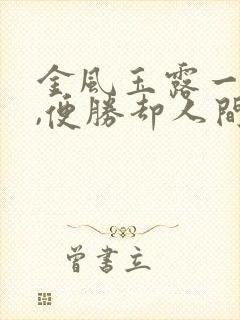 金風玉露一
,便勝却人間
曾書立